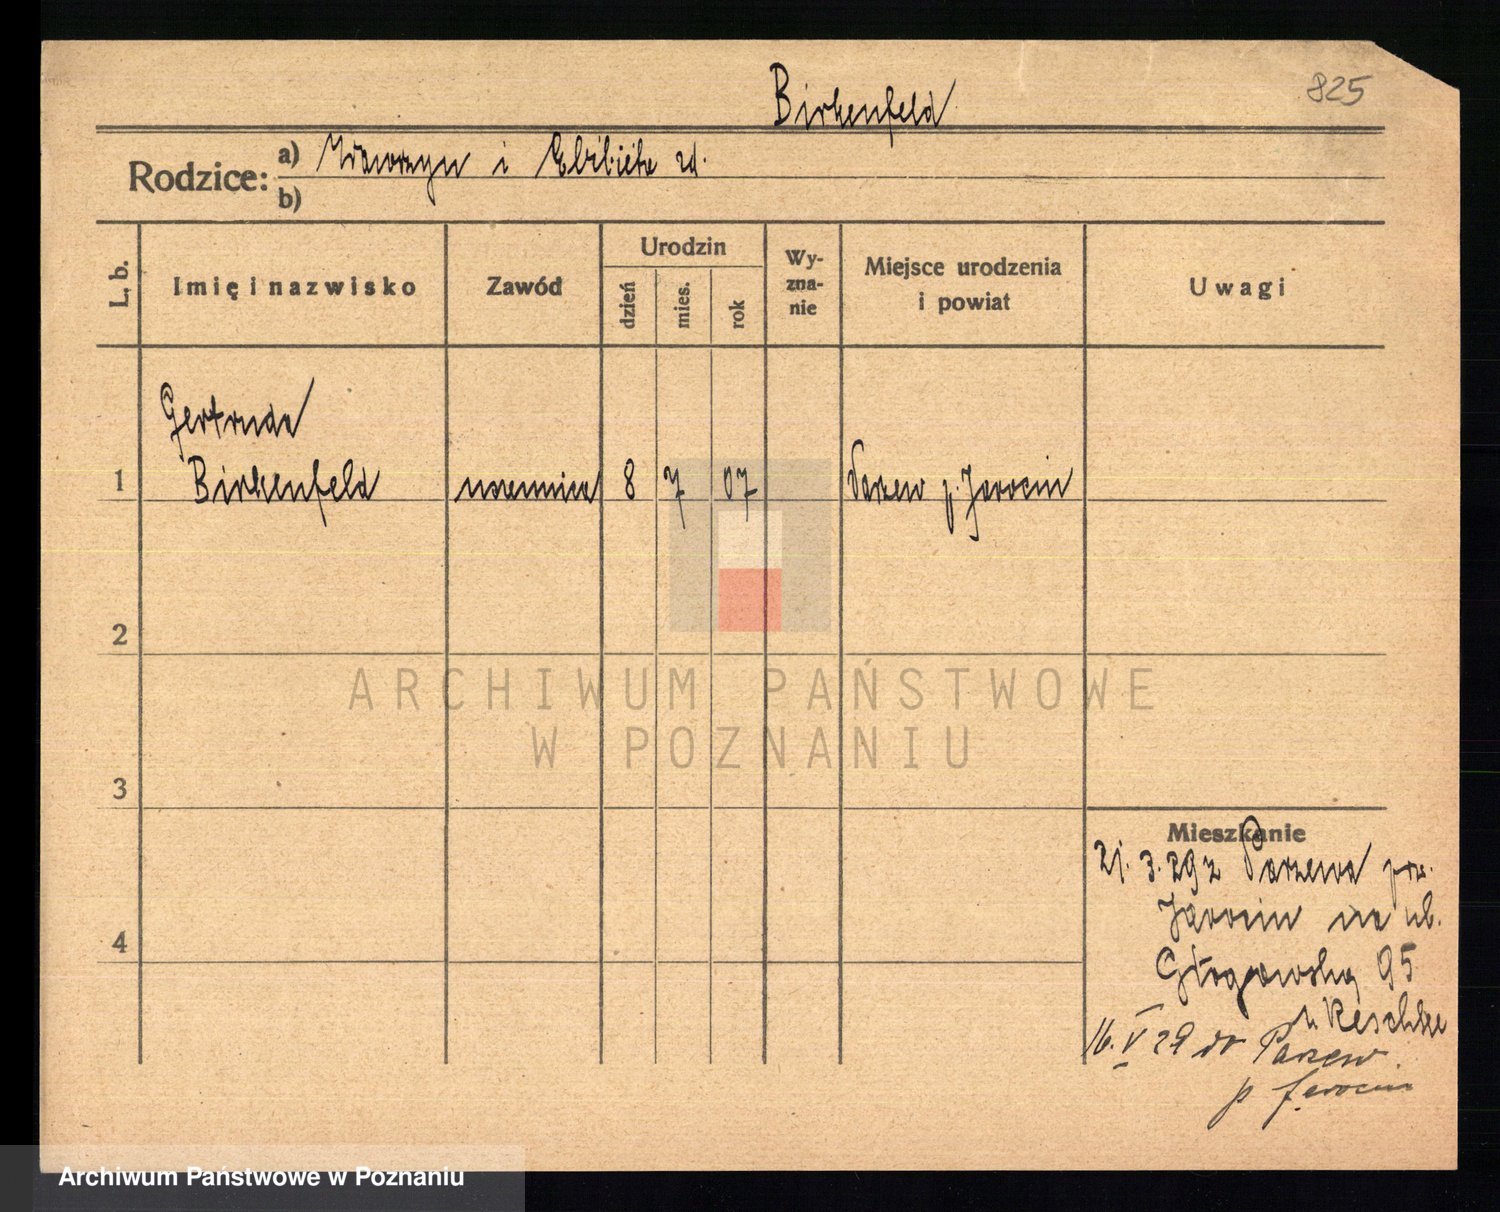 825
Birkenfeld
Rodzice: a) Wawrzyn i Elżbieta zd.
b)
L. b. Imię i nazwisko Zawód Urodzin dzień mies. rok Wy-zna-nie Miejsce urodzenia i powiat Uwagi
Gertruda
1 Birkenfeld uczennica 8 7 07 Parzew p. Jarocin
2
ARCHIWUM PAŃSTWOWE
W POZNANIU
3
Mieszkanie
21. 3. 29 z Parzewa pow.
Jarocin na ul.
4
Głogowską 95
u Reschke
16. V 29 do Parzew
p Jarocin
Archiwum Państwowe w Poznaniu